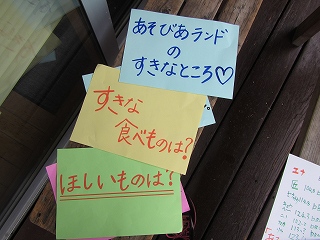 あそびあランド
の
すきなところ♡
すきな
食べものは?
ほしいものは?